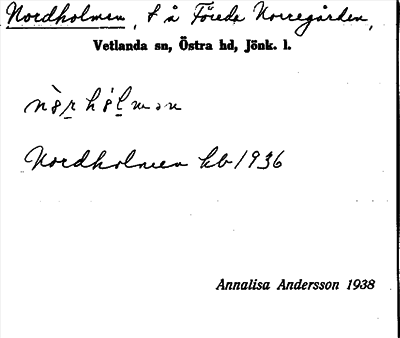 Nordholmen, t å Föreda Norregården,
Vetlanda sn, Östra hd, Jönk. l.
Nordholmen kb 1936
Annalisa Andersson 1938